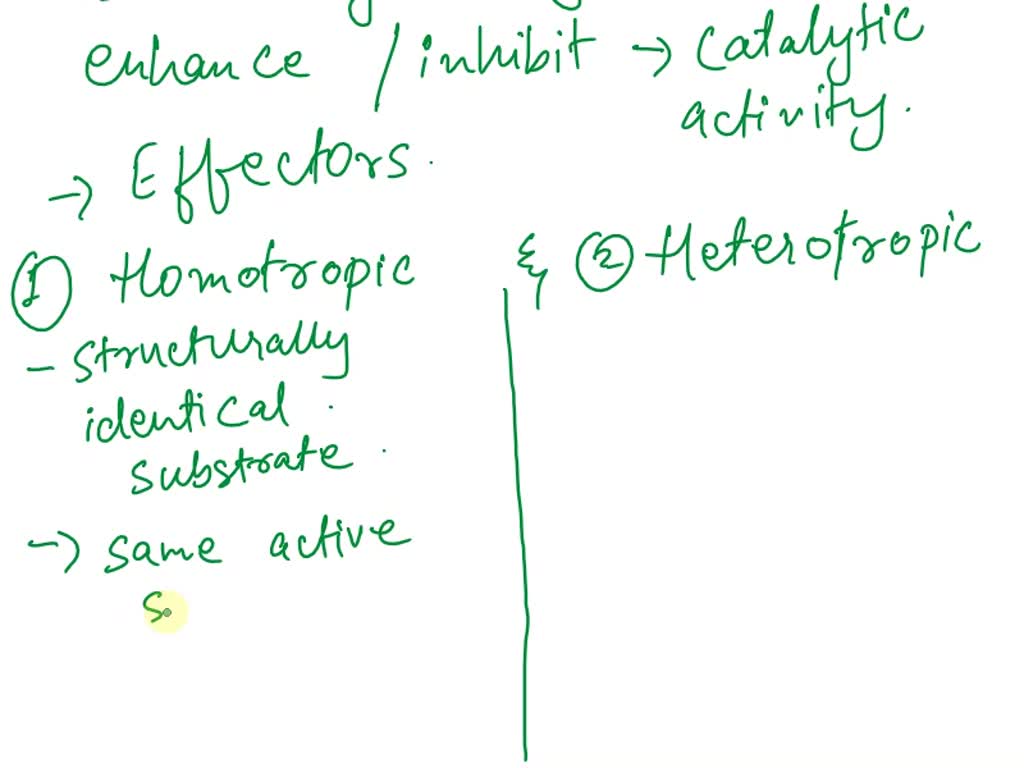 enhance / inhibit → catalytic
activity.
→ Effectors.
① Homotropic & ② Heterotropic
- structurally
identical
substrate.
→ same active
s